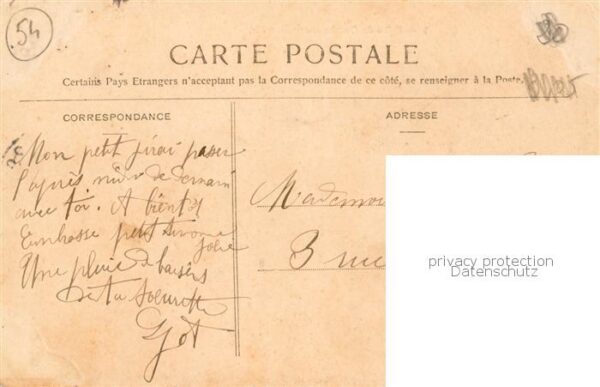 54
CARTE POSTALE
Certains Pays Etrangers n'acceptant pas la Correspondance de ce côté, se renseigner à la Poste
CORRESPONDANCE
ADRESSE
Mon petit j'irai passer
l'après midi de demain
avec toi. A bientôt
Embrasse petit
jolie
Une pluie de baisers
De ta soeurette
Mademoi
3 rue
privacy protection
Datenschutz